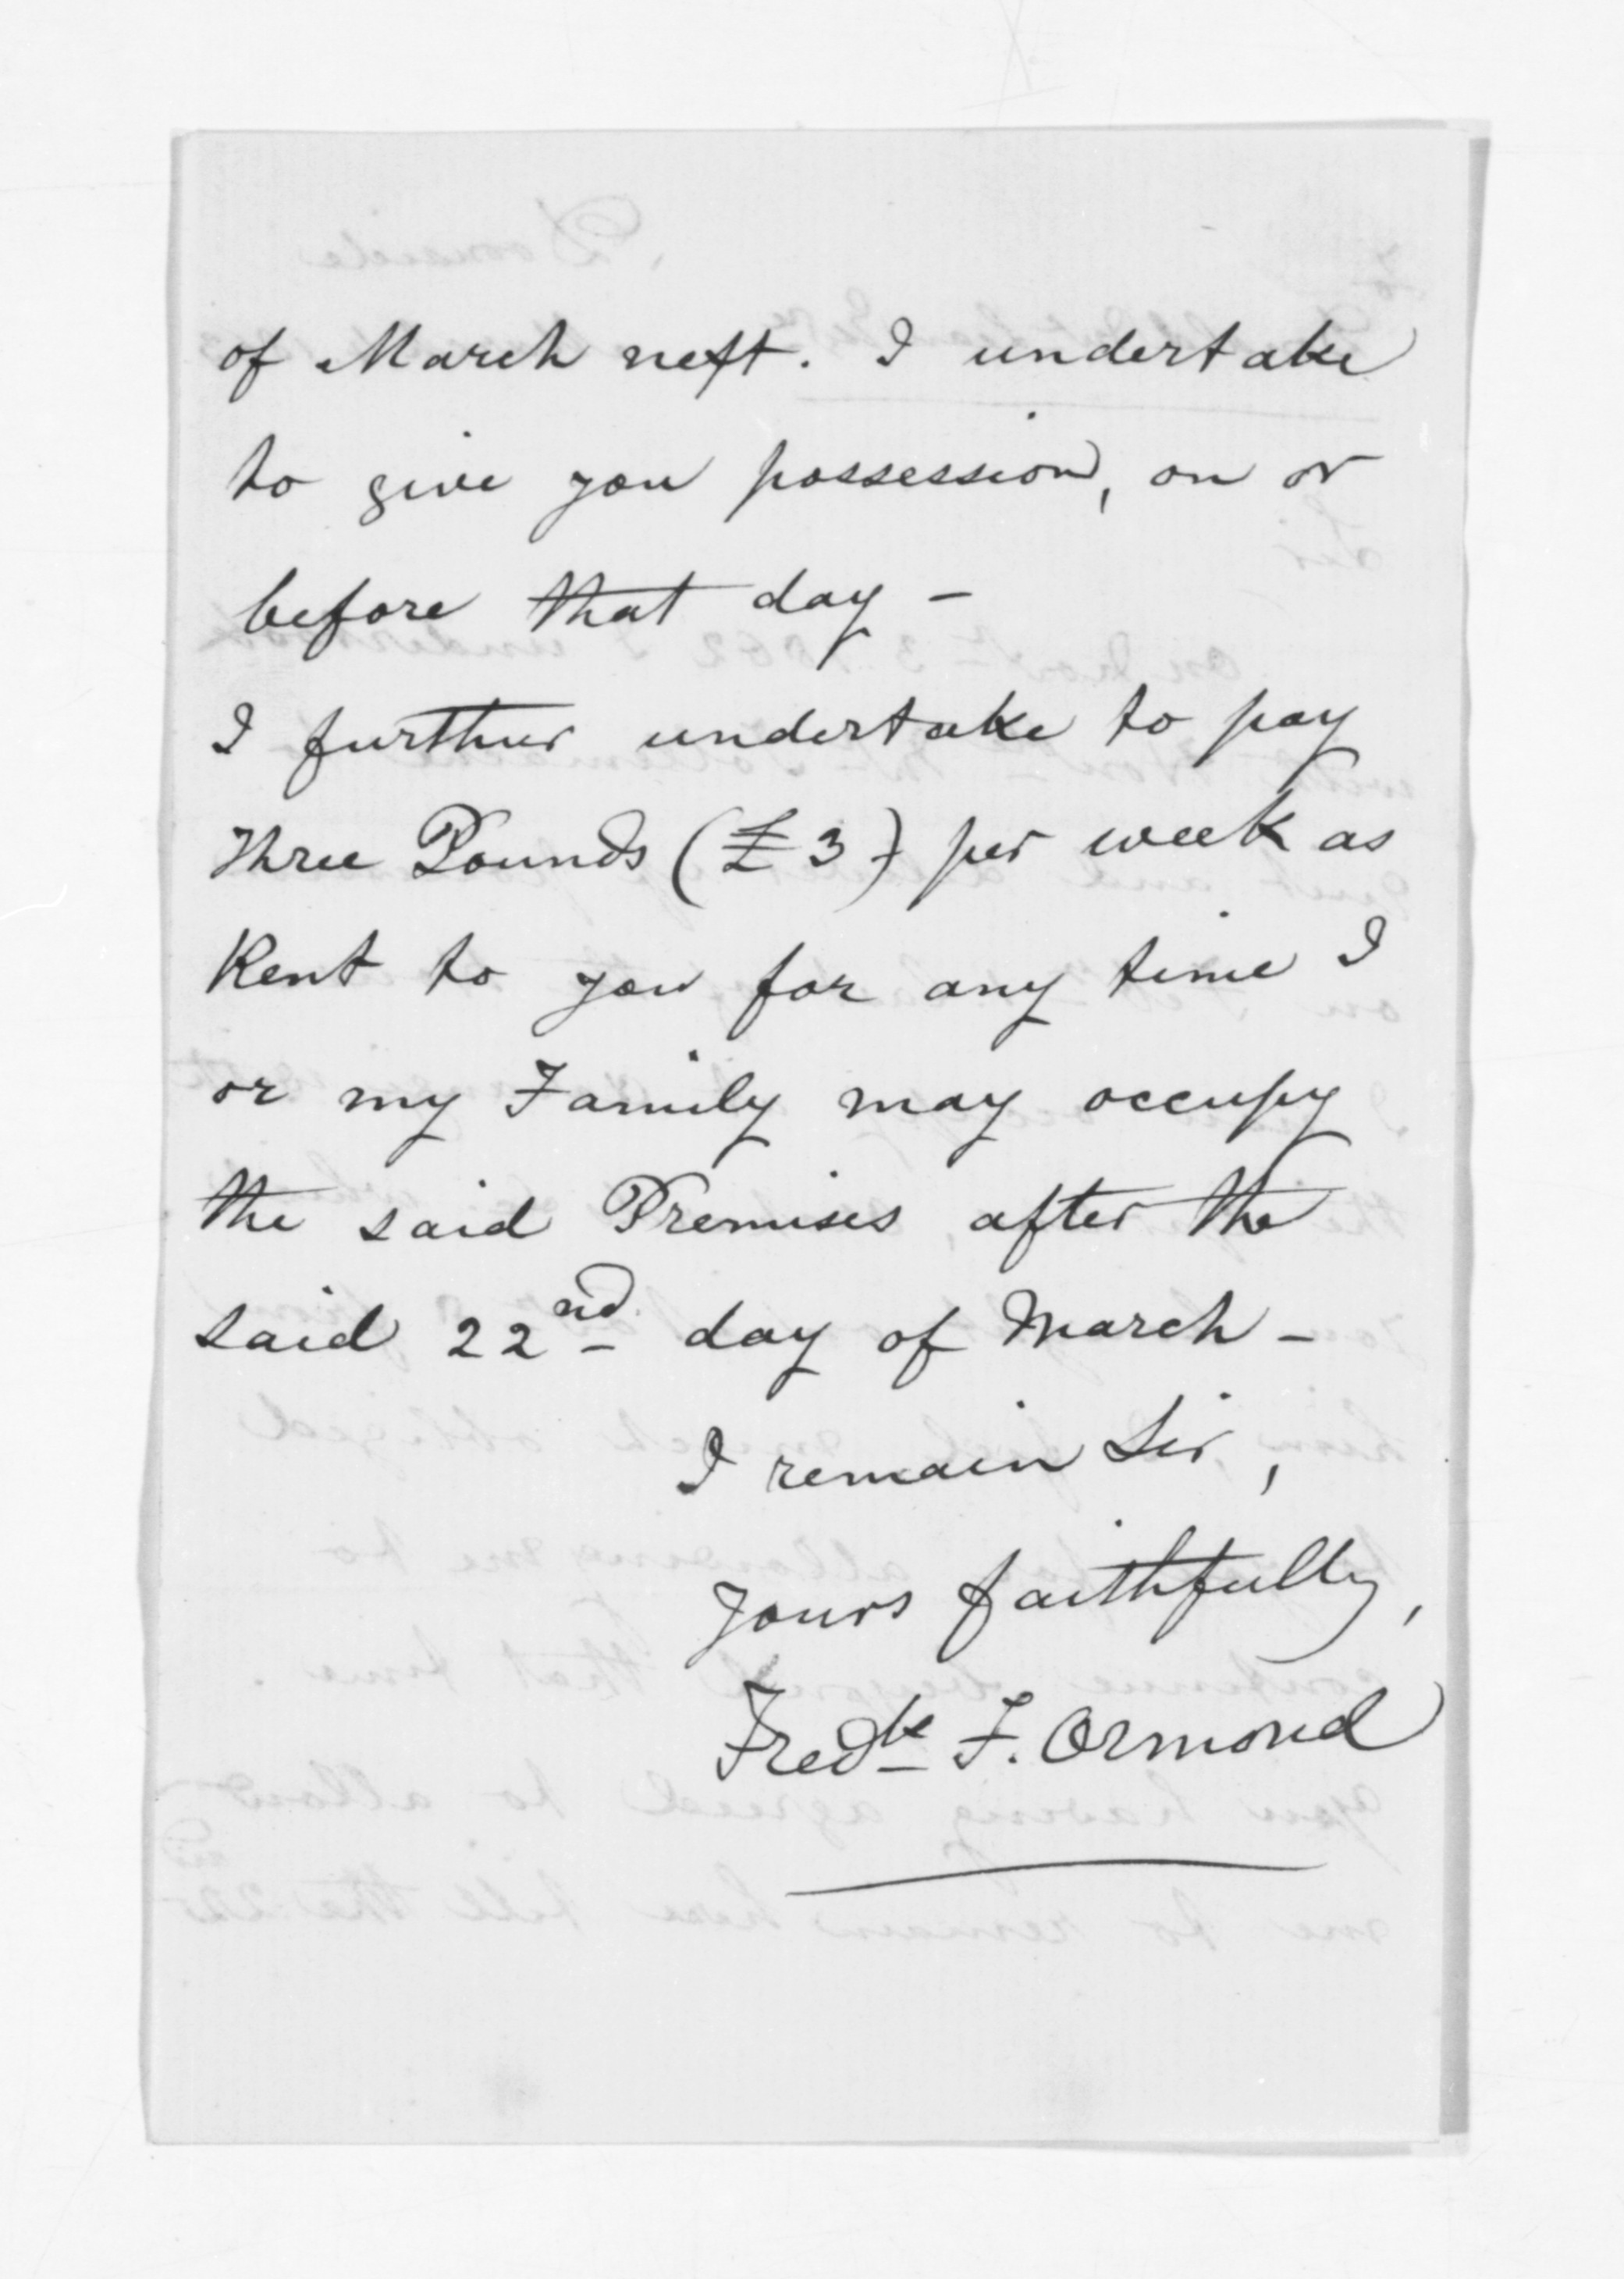 of March next. I undertake
to give you possession, on or
before that day -
I further undertake to pay
three Pounds (£3) per week as
Rent to you for any time I
or my Family may occupy
the said Premises after the
said 22nd day of March -
I remain Sir,
Yours faithfully,
Fredk F. Ormond